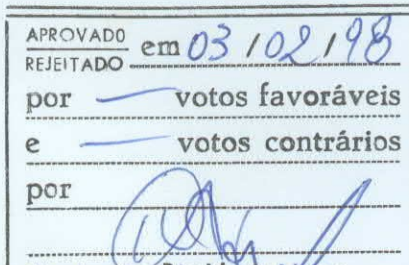 APROVADO
REJEITADO em 03 / 02 / 98
por — votos favoráveis
e — votos contrários
por